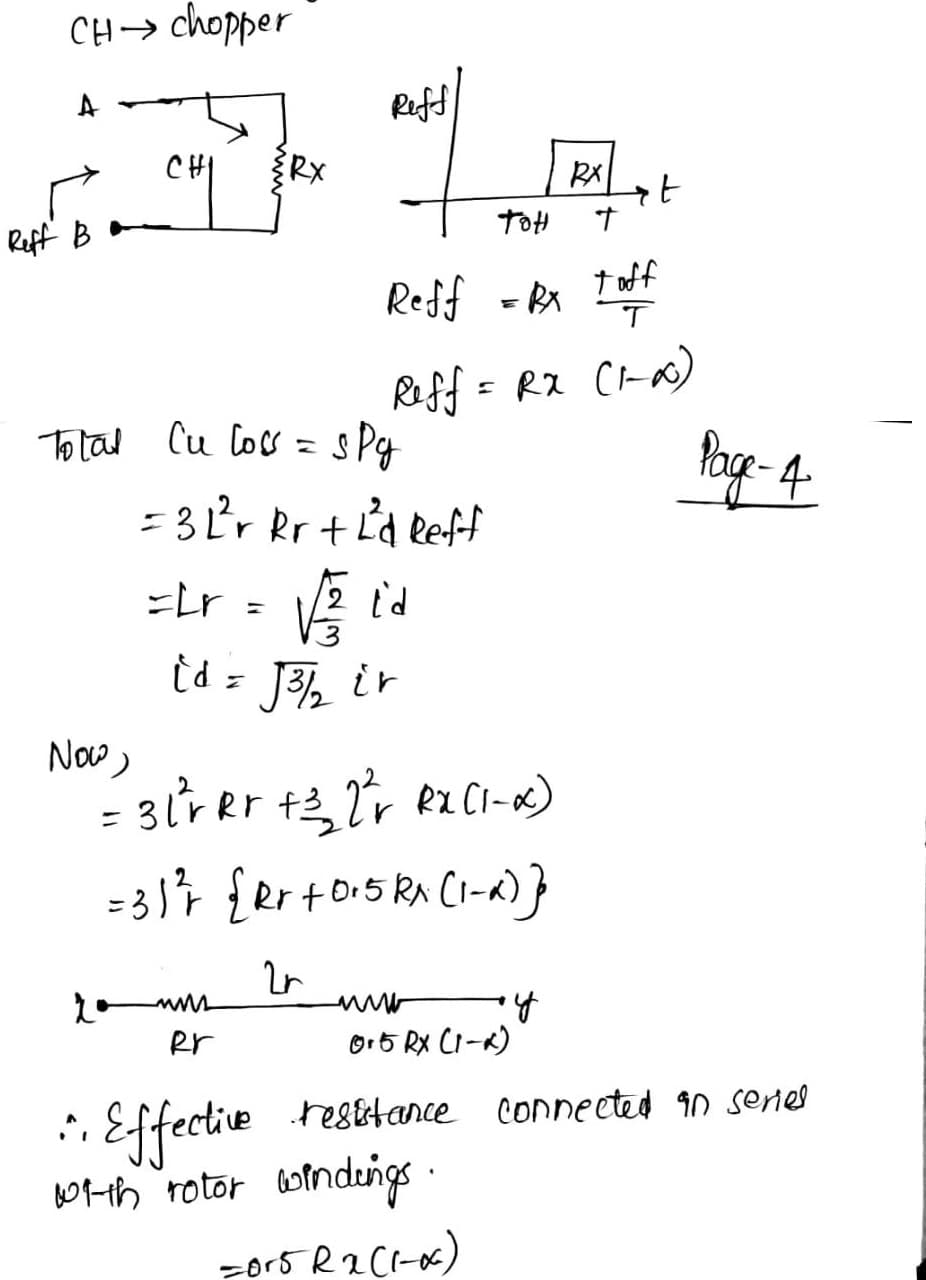 CH → chopper
A
CH
RX
Reff B
Reff
RX
t
Toff T
Reff = RX toff/T
Reff = Rx (1-α)
Total Cu loss = sPg
Page-4
= 3I²r Rr + I²d Reff
= Ir = √2/3 id
id = √3/2 ir
Now,
= 3I²r Rr + 3/2 I²r Rx (1-α)
= 3I²r {Rr + 0.5 Rx (1-α)}
x Ir y
Rr 0.5 RX (1-α)
∴ Effective resistance connected in series
with rotor windings.
= 0.5 Rx (1-α)